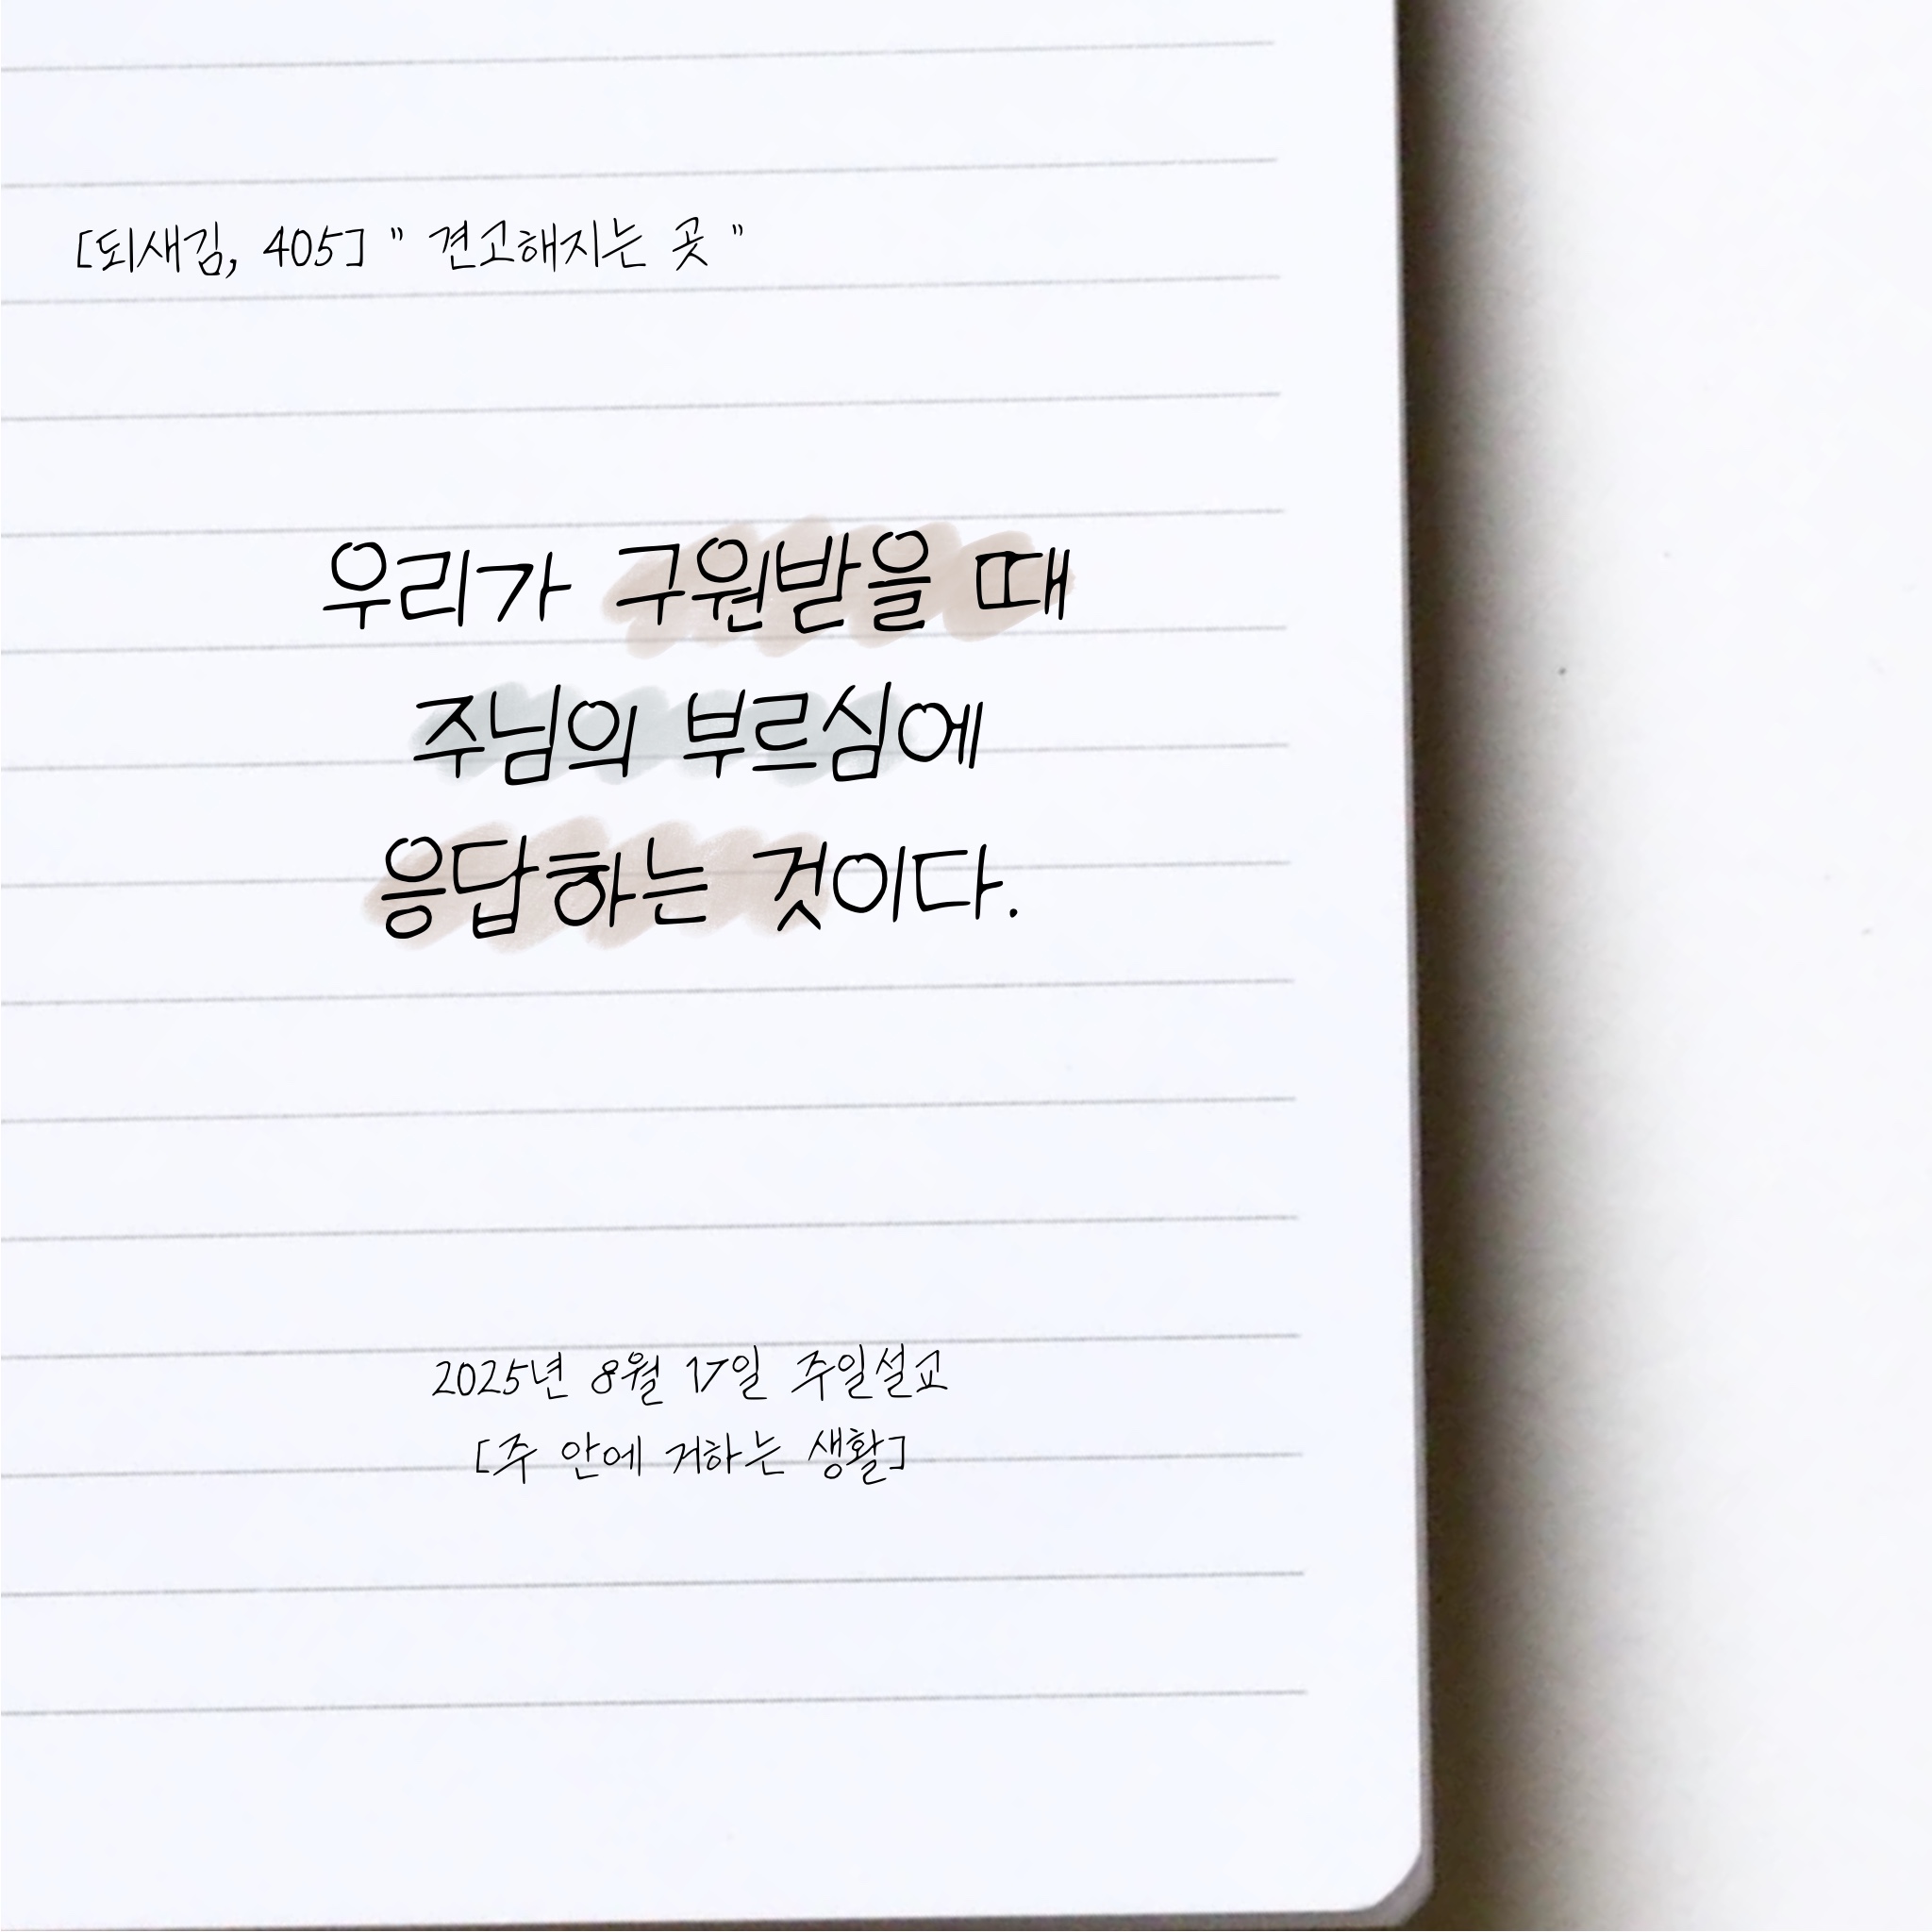 [되새김, 405] " 견고해지는 곳 "
우리가 구원받을 때
주님의 부르심에
응답하는 것이다.
2025년 8월 17일 주일설교
[주 안에 거하는 생활]